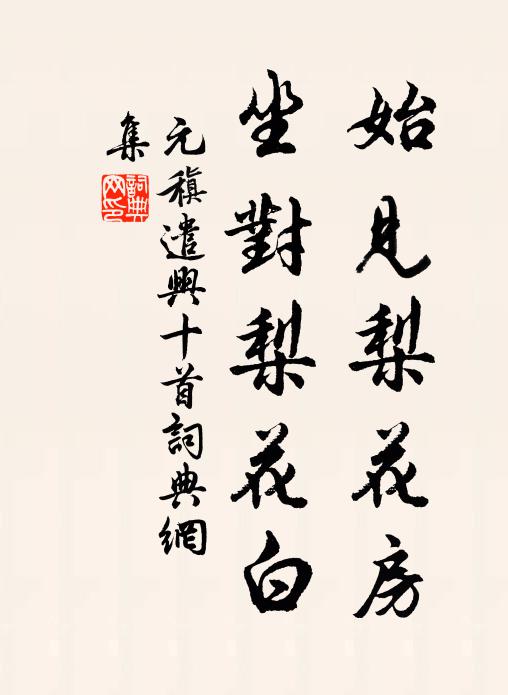 始見梨花房
坐對梨花白
元稹遣興十首詞典網
集
詞典
网印